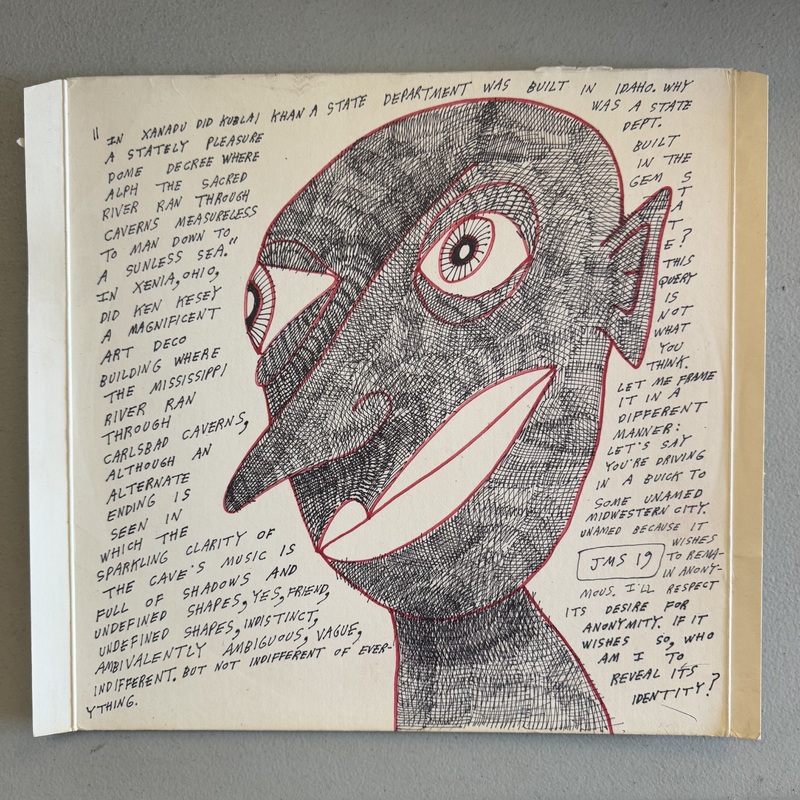 " IN XANADU DID KUBLAI KHAN A STATE DEPARTMENT WAS BUILT IN IDAHO. WHY
A STATELY PLEASURE
DOME DECREE WHERE
ALPH THE SACRED
RIVER RAN THROUGH
CAVERNS MEASURELESS
TO MAN DOWN TO
A SUNLESS SEA."
IN XENIA, OHIO,
DID KEN KESEY
A MAGNIFICENT
ART DECO
BUILDING WHERE
THE MISSISSIPPI
RIVER RAN
THROUGH
CARLSBAD CAVERNS,
ALTHOUGH AN
ALTERNATE
ENDING IS
SEEN IN
WHICH THE
SPARKLING CLARITY OF
THE CAVE'S MUSIC IS
FULL OF SHADOWS AND
UNDEFINED SHAPES, YES, FRIEND,
UNDEFINED SHAPES, INDISTINCT,
AMBIVALENTLY AMBIGUOUS, VAGUE,
INDIFFERENT. BUT NOT INDIFFERENT OF EVER-
YTHING.
WAS A STATE
DEPT.
BUILT
IN THE
GEM S
T
A
T
E?
THIS
QUERY
IS
NOT
WHAT
YOU
THINK.
LET ME FRAME
IT IN A
DIFFERENT
MANNER:
LET'S SAY
YOU'RE DRIVING
IN A BUICK TO
SOME UNAMED
MIDWESTERN CITY.
UNAMED BECAUSE IT
WISHES
TO REMA-
IN ANONY-
JMS 19
MOUS. I'LL RESPECT
ITS DESIRE FOR
ANONYMITY. IF IT
WISHES SO, WHO
AM I TO
REVEAL ITS
IDENTITY?